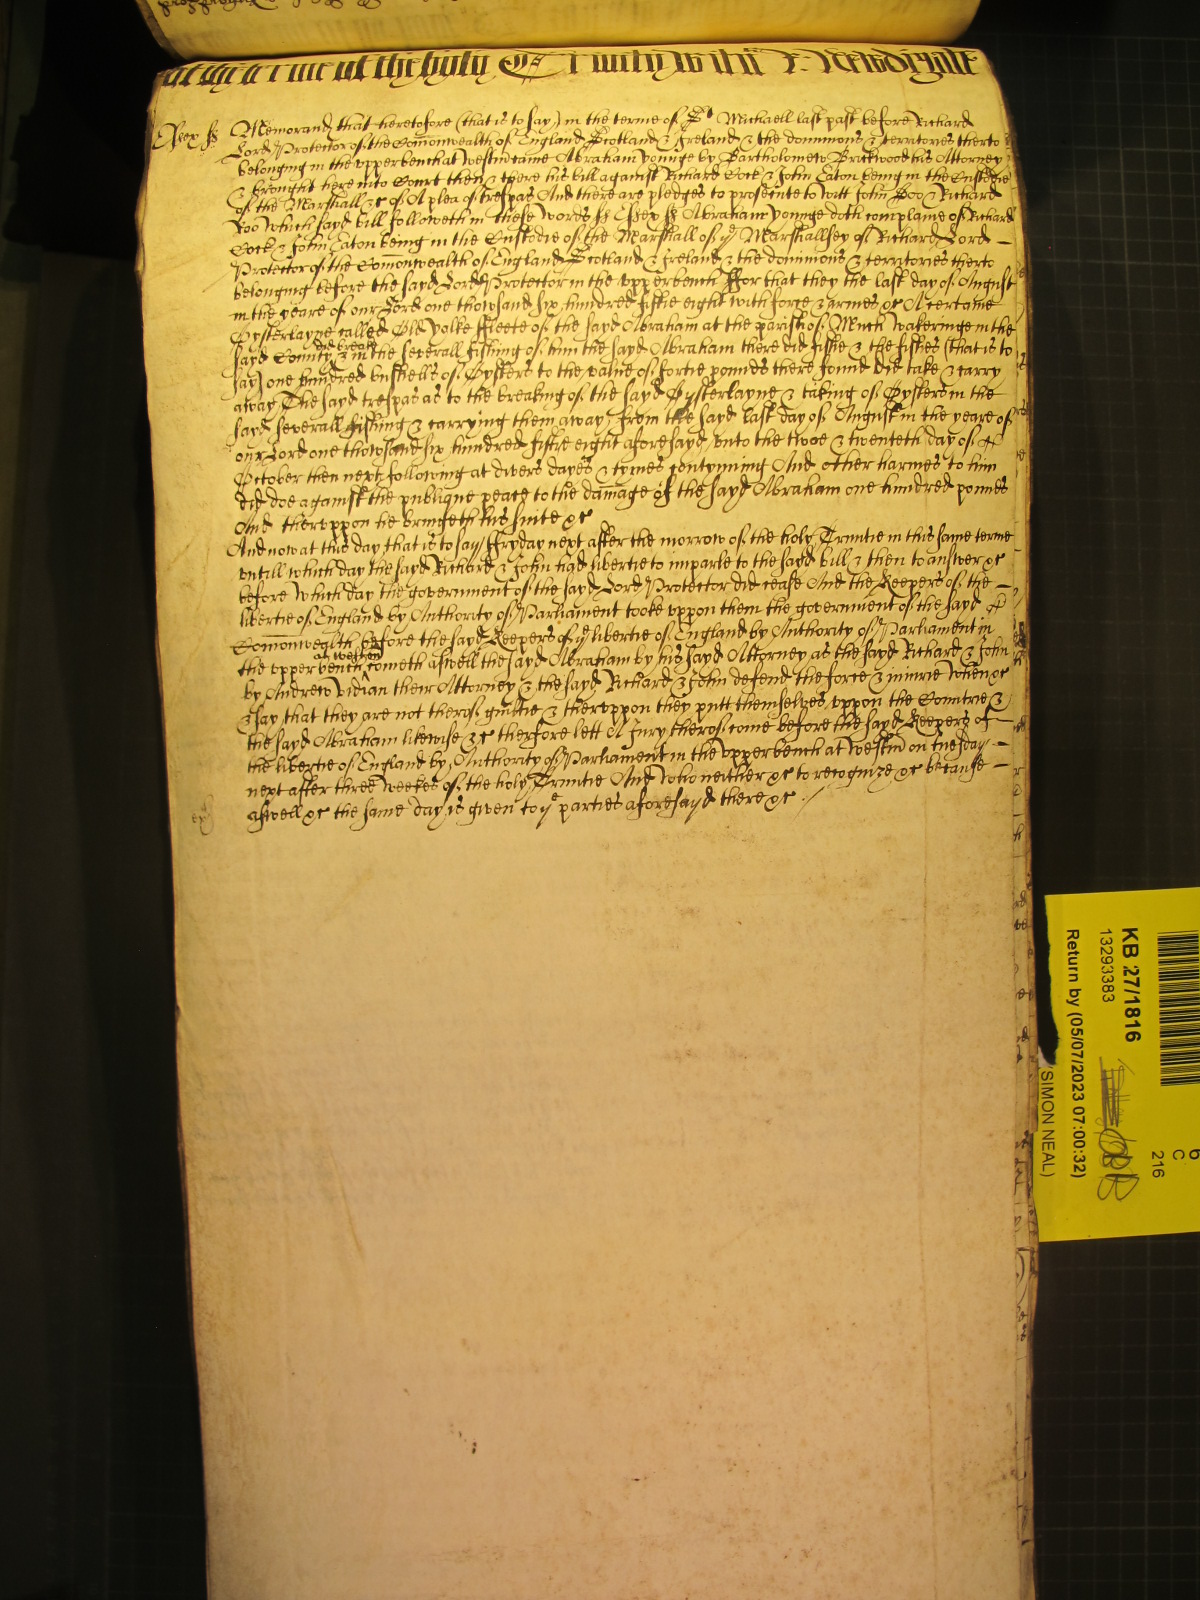 Essex ss Memorand that heretofore (that is to say) in the terme of St Michaell last past before Richard
Lord Protector of the Comonwealth of England Scotland & Ireland & the dominions & territories therto
belonging in the vpper bench at Westm came Abraham Younge by Bartholomew Brickwood his Attorney
& brought here into Court then & there his bill against Richard Cock & John Eaton being in the Custodie
of the Marshall &c of A plea of trespas And there are pledges to prosecute to witt John Doo & Richard
Roo Which sayd bill followeth in these words ss Essex ss Abraham Younge doth complaine of Richard
Cock & John Eaton being in the Custodie of the Marshall of ye Marshallsey of Richard Lord
Protector of the Comonwealth of England Scotland & Ireland & the dominions & territories therto
belonging before the sayd Lord Protector in the vpper bench ffor that they the last day of August
in the yeare of our Lord one thowsand six hundred fiftie eight with force & armes &c A certaine
Oysterlayne called Old Yolke ffleete of the sayd Abraham at the parish of Much Wakeringe in the
sayd County did breake & in the severall fishing of him the sayd Abraham there did fishe & the fishes (that is to
say) one hundred bushells of Oysters to the value of fortie pounds there found did take & carry
away The sayd trespas as to the breaking of the sayd Oysterlayne & taking of Oysters in the
sayd severall fishing & carrying them away from the sayd last day of August in the yeare of
our Lord one thowsand six hundred fiftie eight aforesayd vnto the twoe & twenteth day of
October then next following at divers dayes & tymes contynuing And other harmes to him
did doe against the publique peace to the damage of the sayd Abraham one hundred pounds
And therevppon he bringeth his suite &c
And now at this day that is to say ffryday next after the morrow of the holy Trinitie in this same terme
vntill which day the sayd Richard & John had libertie to imparle to the sayd bill & then to answer &c
before Which day the government of the sayd Lord Protector did cease And the Keepers of the
libertie of England by Authority of Parliament tooke vppon them the government of the sayd
Comonwealth before the sayd Keepers of ye libertie of England by Authority of Parliament in
the vpper bench at Westm cometh aswell the sayd Abraham by his sayd Attorney as the sayd Richard & John
by Andrew Vidian their Attorney & the sayd Richard & John defend the force & iniurie When &c
& say that they are not therof guiltie & therevppon they putt themselves vppon the Countrie &
the sayd Abraham likewise &c therfore lett A Jury therof come before the sayd Keepers of
the libertie of England by Authority of Parliament in the vpper bench at Westm on tuesday
next after three weekes of the holy Trinitie And Who neither &c to recognize &c because
aswell &c the same day is given to ye parties aforesayd there &c
KB 27/1816
13293383
Return by (05/07/2023 07:00:32)
(SIMON NEAL)
6
C
216